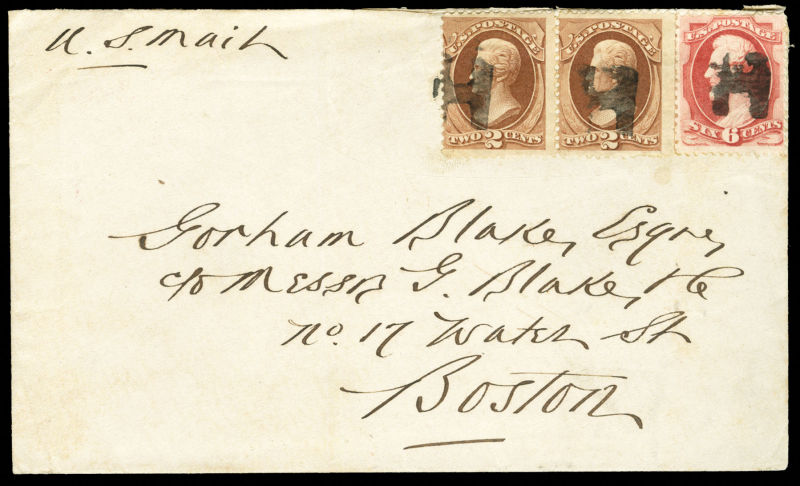 U.S. Mail
U.S. POSTAGE
TWO 2 CENTS
U.S. POSTAGE
TWO 2 CENTS
U.S. POSTAGE
SIX 6 CENTS
Gorham Blake, Esqre,
c/o Messrs G. Blake, & Co
No. 17 Water St
Boston